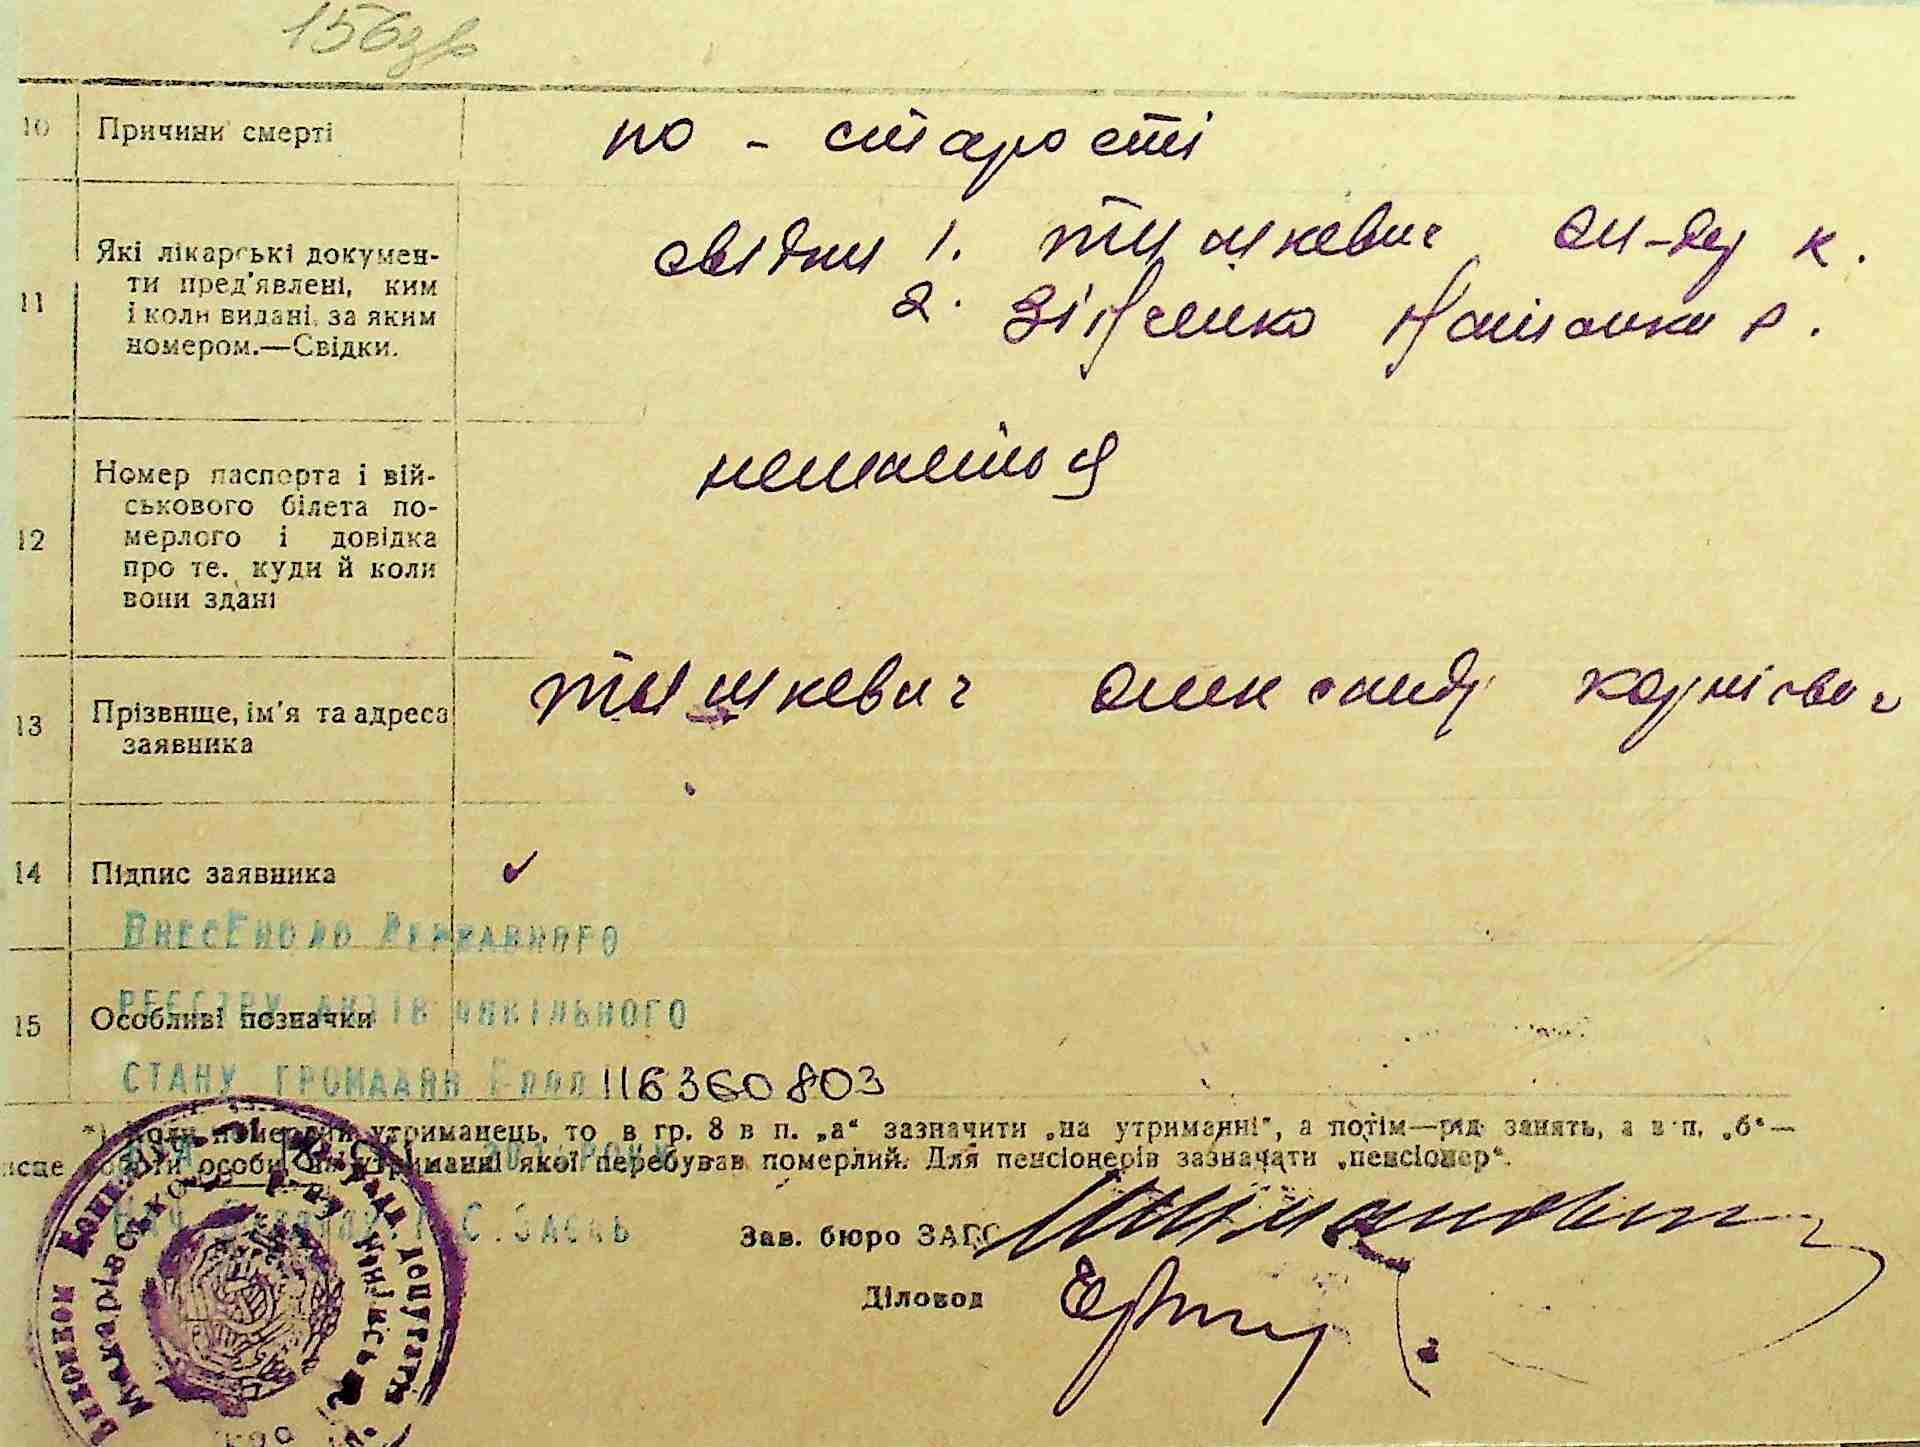 156зв
10 Причини смерті
по - старості
11 Які лікарські докумен-
ти пред'явлені, ким
і коли видані, за яким
номером.—Свідки.
свідки 1. Тишкевич Ол-др К.
2.
12 Номер паспорта і вій-
ськового білета по-
мерлого і довідка
про те, куди й коли
вони здані
немається
13 Прізвище, ім'я та адреса
заявника
Тышкевич Олександр Корнієвич
14 Підпис заявника
Внесено до Державного
15 Особливі позначки
реєстру актів цивільного
стану громадян 116360803
*) Коли померлий утриманець, то в гр. 8 в п. „а“ зазначити „на утриманні“, а потім—рід занять, а в п. „б“—
місце роботи особи, на утриманні якої перебував померлий. Для пенсіонерів зазначати „пенсіонер“.
С. Заєць
Зав. бюро ЗАГС
Діловод
Виконком депутатів
Макарівсько